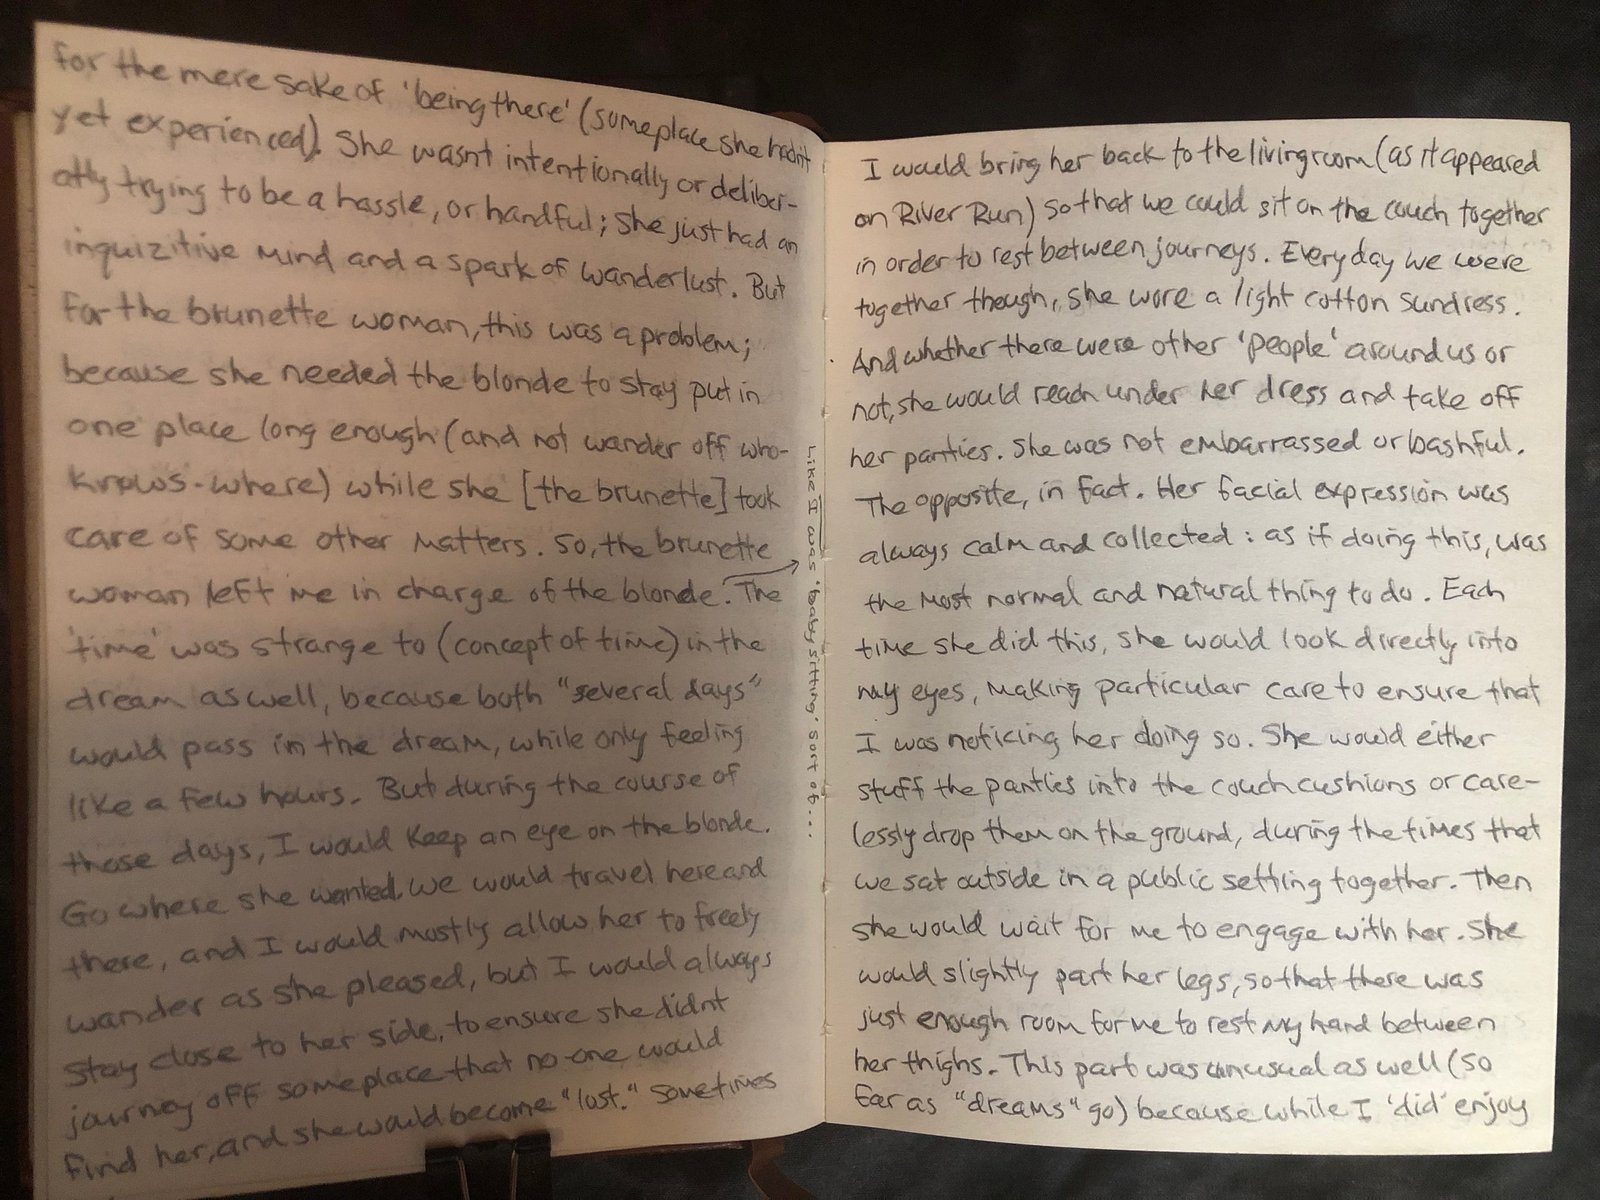 for the mere sake of 'being there' (someplace she hadn't
yet experienced). She wasnt intentionally or deliber-
atly trying to be a hassle, or handful; She just had an
inquizitive mind and a spark of wanderlust. But
for the brunette woman, this was a problem;
because she needed the blonde to stay put in
one place long enough (and not wander off who-
knows-where) while she [the brunette] took
care of some other matters. So, the brunette
woman left me in charge of the blonde. The
'time' was strange to (concept of time) in the
dream as well, because both "several days"
would pass in the dream, while only feeling
like a few hours. But during the course of
those days, I would keep an eye on the blonde.
Go where she wanted. We would travel here and
there, and I would mostly allow her to freely
wander as she pleased, but I would always
stay close to her side, to ensure she didnt
journey off someplace that no-one would
find her, and she would become "lost." Sometimes
Like I was 'babysitting' sort of...
I would bring her back to the livingroom (as it appeared
on River Run) so that we could sit on the couch together
in order to rest between journeys. Every day we were
together though, she wore a light cotton sundress.
And whether there were other 'people' around us or
not, she would reach under her dress and take off
her panties. She was not embarrassed or bashful.
The opposite, in fact. Her facial expression was
always calm and collected: as if doing this, was
the most normal and natural thing to do. Each
time she did this, she would look directly into
my eyes, making particular care to ensure that
I was noticing her doing so. She would either
stuff the panties into the couch cushions or care-
lessly drop them on the ground, during the times that
we sat outside in a public setting together. Then
she would wait for me to engage with her. She
would slightly part her legs, so that there was
just enough room for me to rest my hand between
her thighs. This part was unusual as well (so
far as "dreams" go) because while I 'did' enjoy